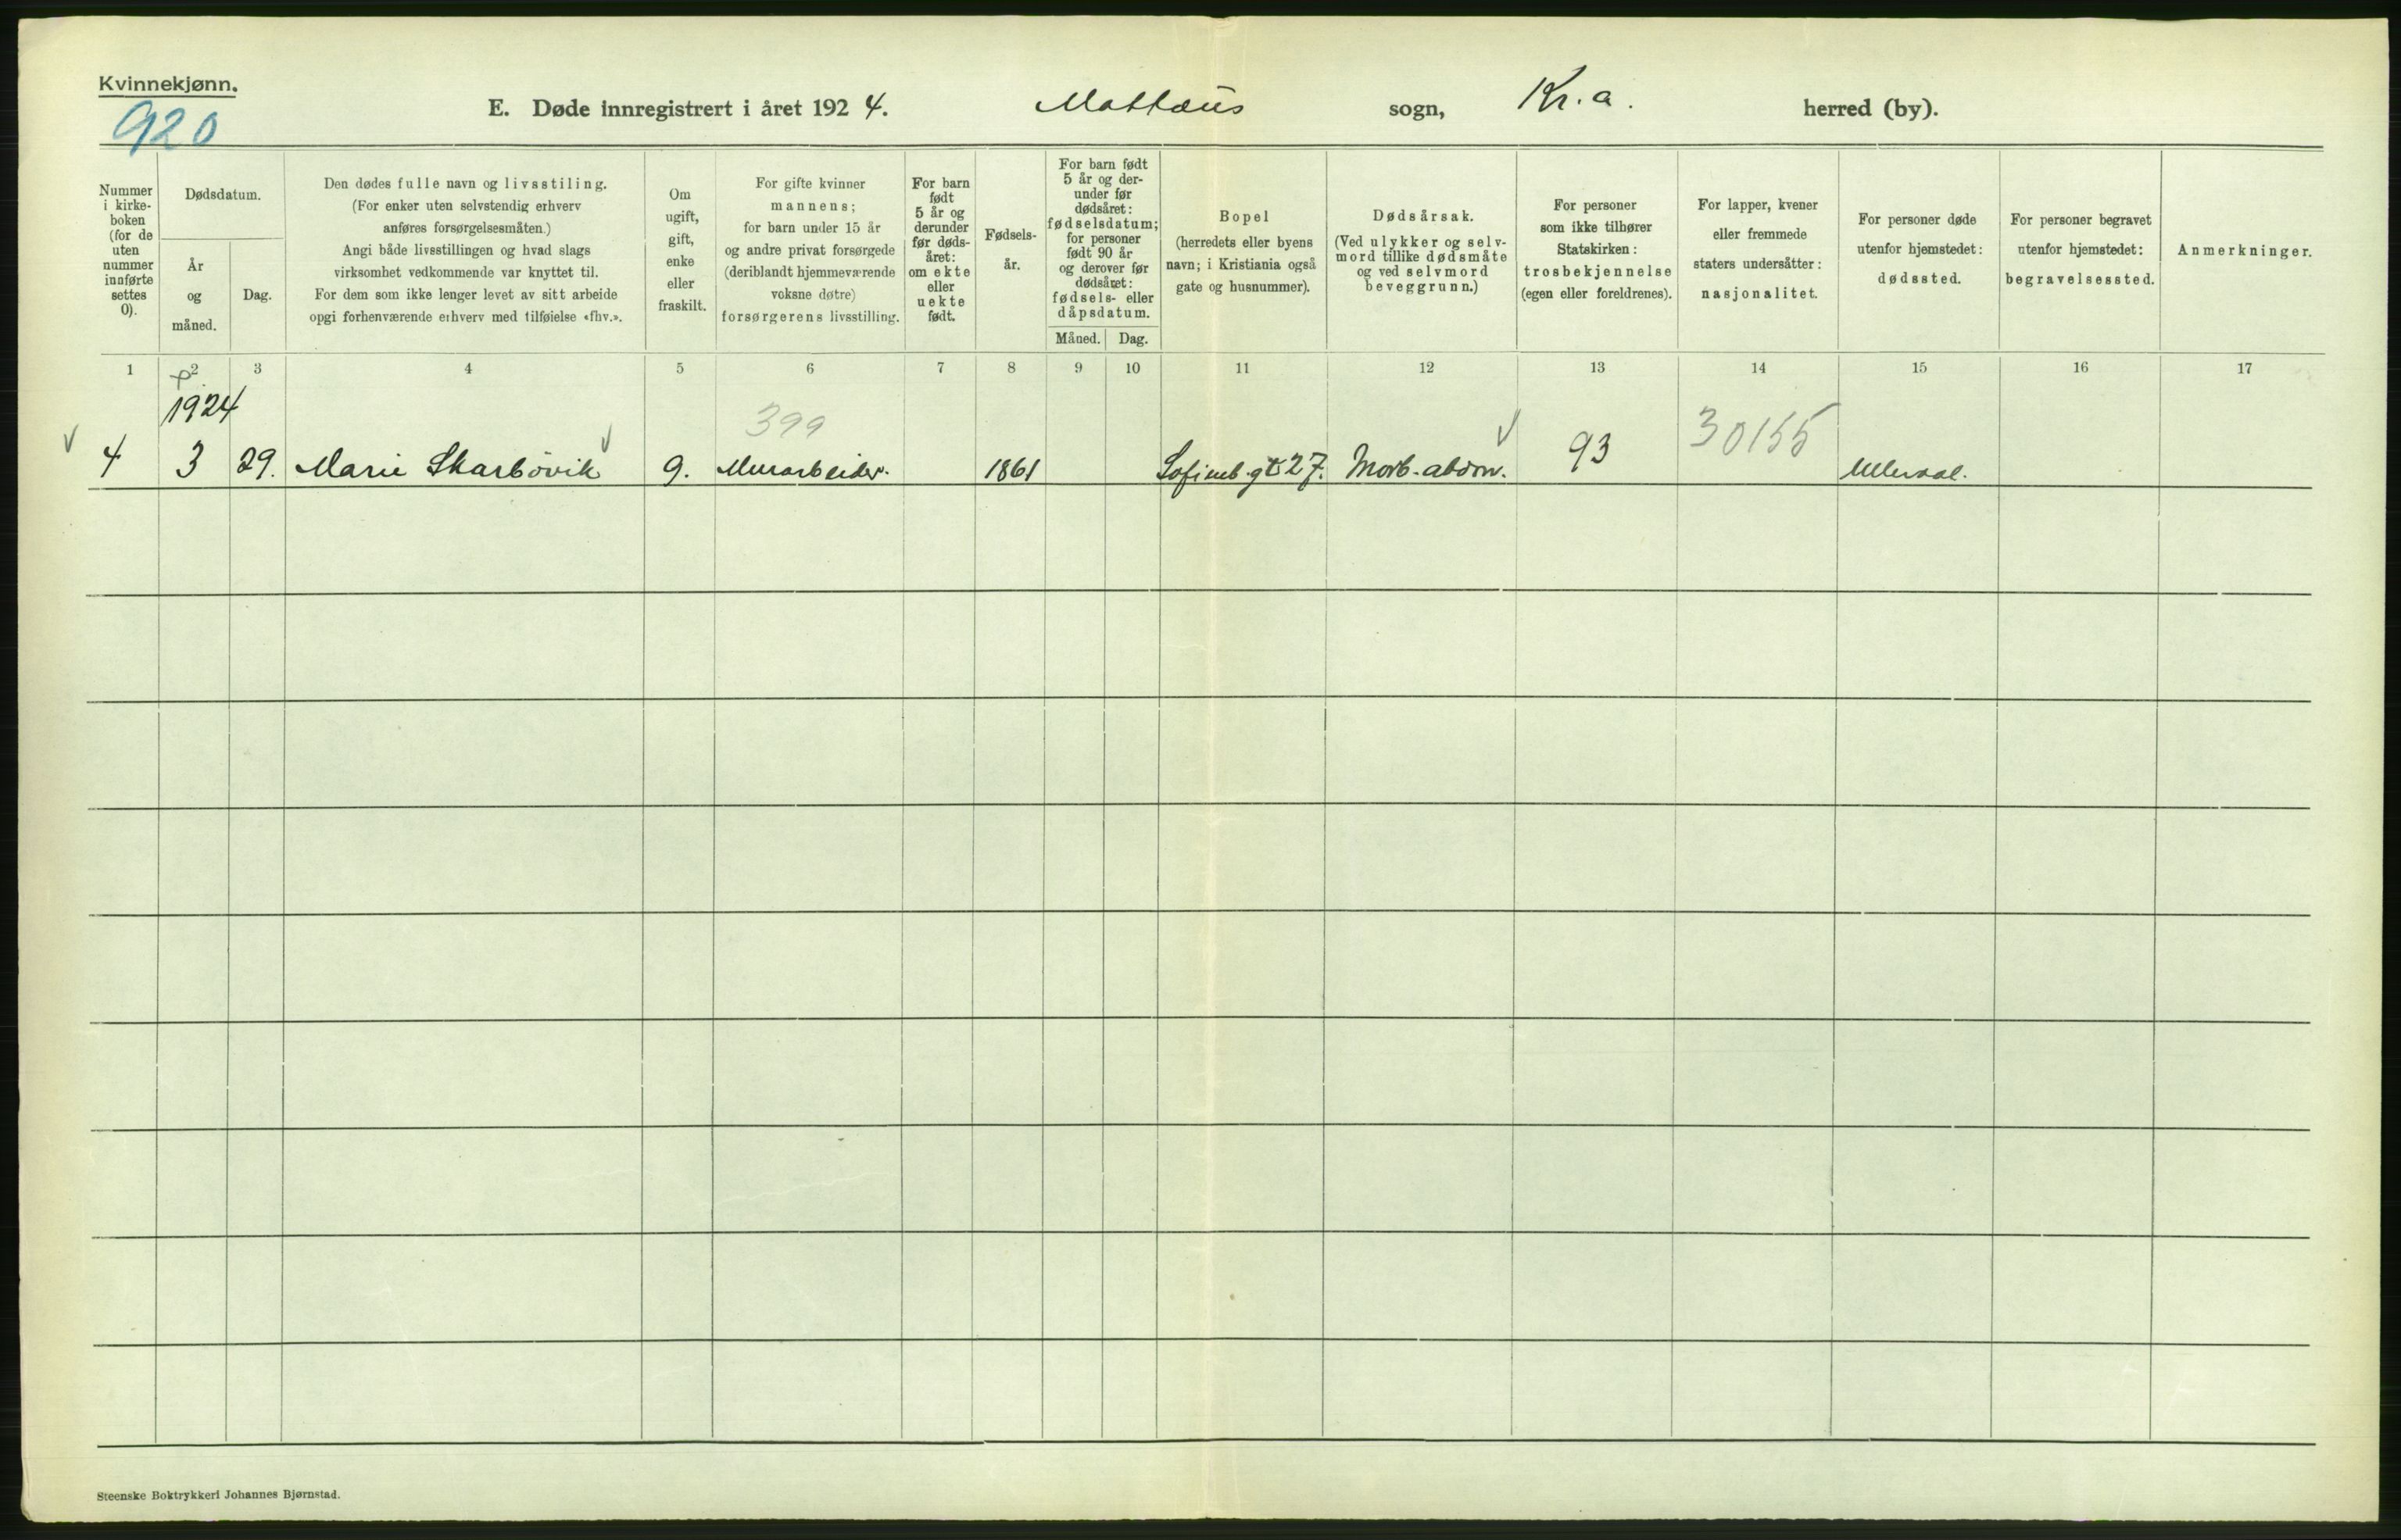 Kvinnekjønn.
920
E. Døde innregistrert i året 1924. Mattæus sogn, Kr.a. herred (by).
Nummer i kirke- boken (for de uten nummer innførte settes 0).
Dødsdatum.
År og måned.
Dag.
Den dødes fulle navn og livsstiling.
(For enker uten selvstendig erhverv
anføres forsørgelsesmåten.)
Angi både livsstillingen og hvad slags
virksomhet vedkommende var knyttet til.
For dem som ikke lenger levet av sitt arbeide
opgi forhenværende erhverv med tilføielse «fhv.».
Om
ugift,
gift,
enke
eller
fraskilt.
For gifte kvinner
mannens;
for barn under 15 år
og andre privat forsørgede
(deriblandt hjemmeværende
voksne døtre)
forsørgerens livsstilling.
For barn
født
5 år og
derunder
før døds-
året:
om ekte
eller
uekte
født.
Fødsels-
år.
For barn født
5 år og der-
under før
dødsåret:
fødselsdatum;
for personer
født 90 år
og derover før
dødsåret:
fødsels- eller
dåpsdatum.
Måned. Dag.
Bopel
(herredets eller byens
navn; i Kristiania også
gate og husnummer).
Dødsårsak.
(Ved ulykker og selv-
mord tillike dødsmåte
og ved selvmord
beveggrunn.)
For personer
som ikke tilhører
Statskirken:
trosbekjennelse
(egen eller foreldrenes).
For lapper, kvener
eller fremmede
staters undersåtter:
nasjonalitet.
For personer døde
utenfor hjemstedet:
dødssted.
For personer begravet
utenfor hjemstedet:
begravelsessted.
Anmerkninger.
1 2 3 4 5 6 7 8 9 10 11 12 13 14 15 16 17
1924
399
4 3 29. Marie Skarbövik g. Murarbeider. 1861 Sofienb.gt 27. Morb. abdom. 93 30155 Ulleval.
Steenske Boktrykkeri Johannes Bjørnstad.